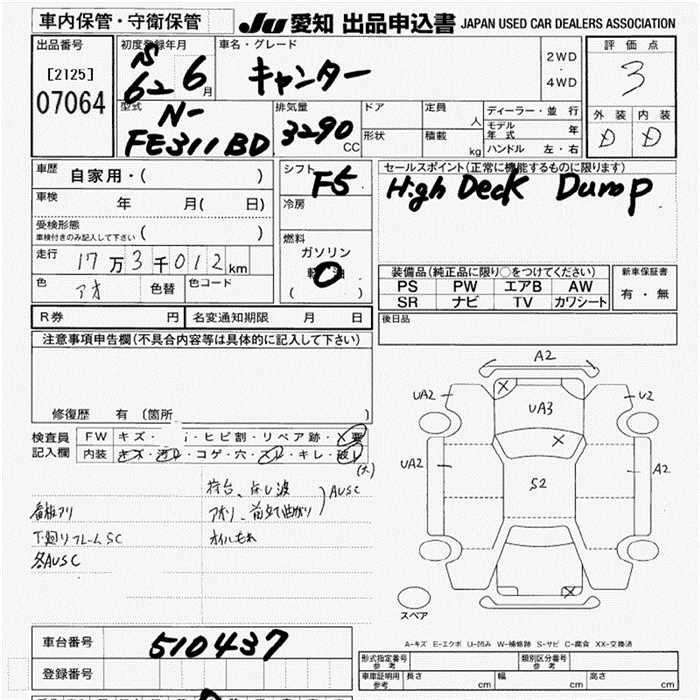 車内保管・守衛保管
JU 愛知 出品申込書 JAPAN USED CAR DEALERS ASSOCIATION
出品番号
[2125]
07064
初度登録年月
S
62 6月
車名・グレード
キャンター
2WD
4WD
評価点
3
外装 内装
D D
型式
N-
FE311BD
排気量
3290
CC
ドア
形状
定員
人
積載
kg
ディーラー・並行
モデル年式 年
ハンドル 左・右
車歴
自家用・( )
車検 年 月( 日)
受検形態
車検付きのみ記入して下さい ( )
走行
17万3千012km
色
アオ
色替
色コード
シフト
F5
冷房
燃料
ガソリン
( )
セールスポイント(正常に機能するものに限ります)
High Deck Dump
装備品(純正品に限り○をつけてください)
PS PW エアB AW
SR ナビ TV カワシート
新車保証書
有・無
R券 円
名変通知期限 月 日
後日品
注意事項申告欄(不具合内容等は具体的に記入して下さい)
修復歴 有 〔箇所 )
検査員記入欄
FW キズ・ ・ヒビ割・リペア跡・X要
内装 キズ・汚レ・コゲ・穴・スレ・キレ・破レ
(大)
看板アリ
下廻リフレームSC
各AUSC
荷台、
AUSC
アオリ、
オイルもれ
A2
UA2
UA3
U2
UA2
S2
A2
スペア
A-キズ E-エクボ U-凹み W-補修跡 S-サビ C-腐食 XX-交換済
車台番号
510437
登録番号
形式指定番号
参考
類別区分番号
参考
車庫証明用
参考
長さ cm
幅 cm
高さ cm